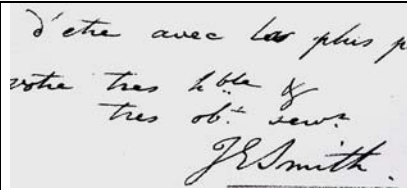 d'etre avec les plus p
votre tres hble &
tres obt. serv.
JESmith.